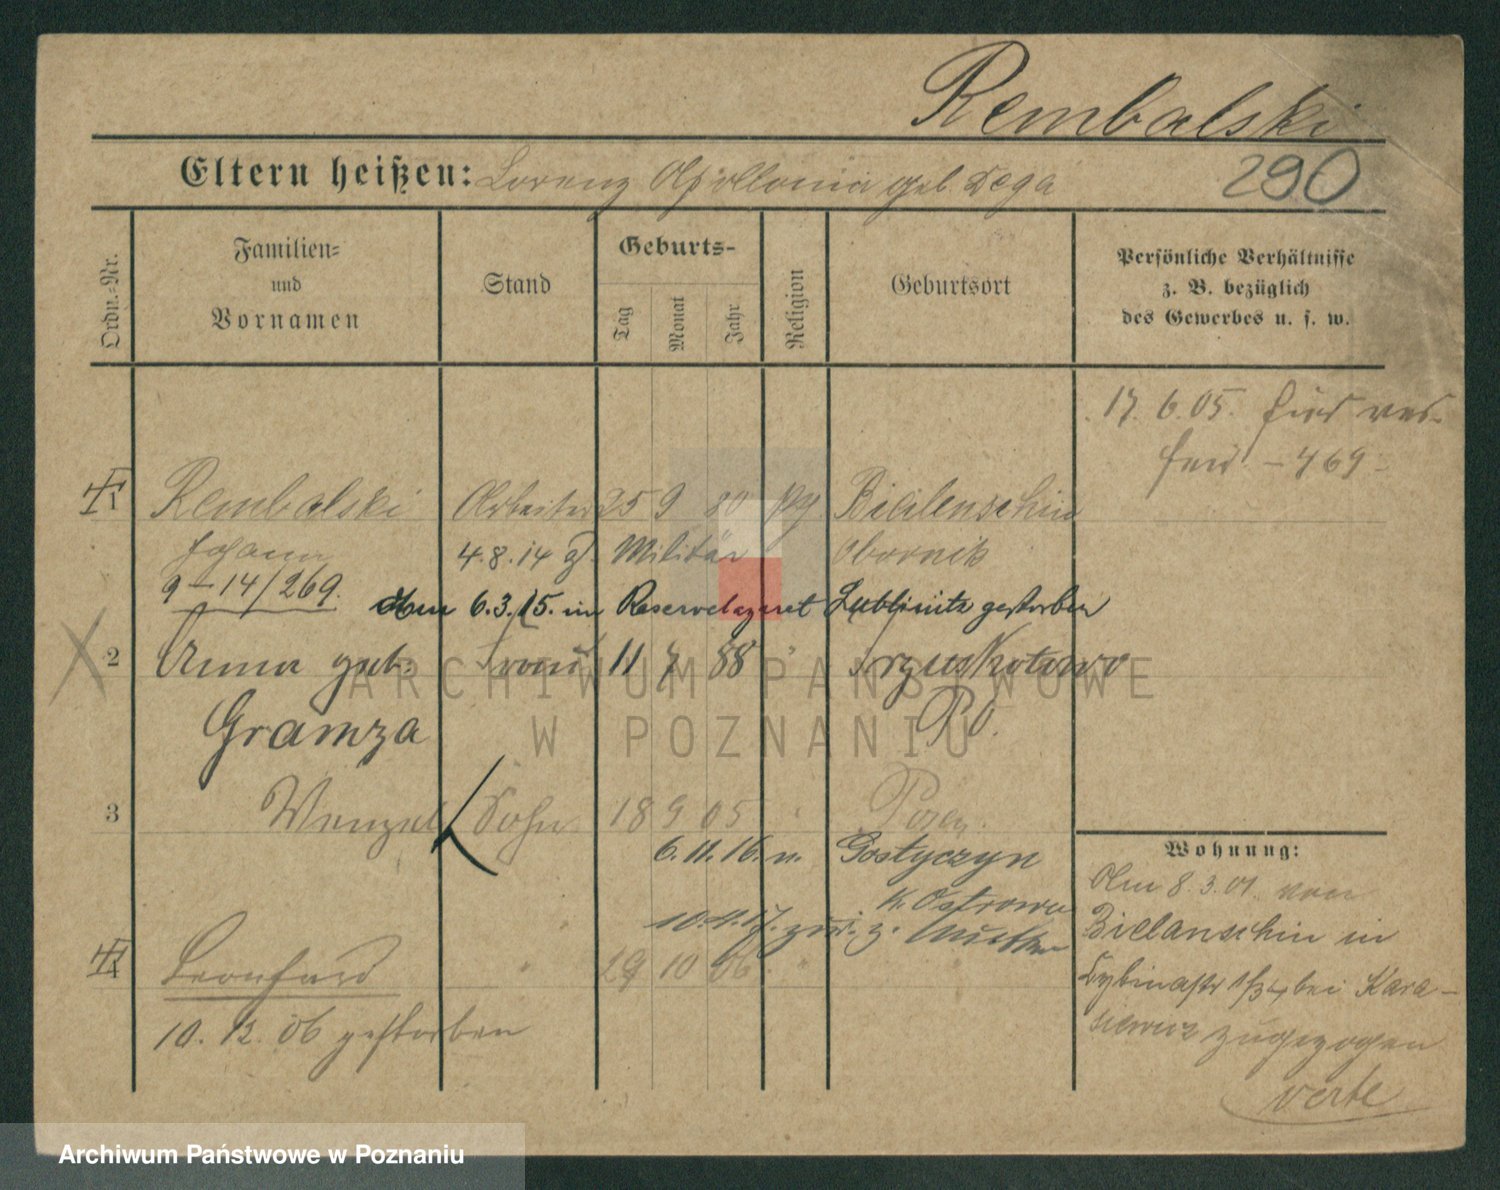 Rembalski
Eltern heißen: Lorenz Apollonia geb. Dega 290
Ordn.-Nr.
Familien- und Vornamen
Stand
Geburts-
Tag Monat Jahr
Religion
Geburtsort
Persönliche Verhältnisse
z. B. bezüglich
des Gewerbes u. s. w.
17. 6. 05.
469
1 Rembalski Arbeiter 25 9 80 Bielenschin
Johann 4. 8. 14 Militär Obornik
9-14/269. Am 6. 3. 15. im Reservelazaret Lublinitz gestorben
2 Anna geb. Frau 11 7 88 Przuskotowo
Gramza Po.
3 Wenzel Sohn 18 9 05 Posen
6. 11. 16. n. Gostyczyn
K. Ostrowo
10. 4. 17. zur. z. Mutter
4 Leonhard " 29 10 06 "
10. 12. 06 gestorben
Wohnung:
Am 8. 3. 01 von
Bielanschin in
Cybinastr 1/34 bei Kara-
siewicz zugezogen
verte
ARCHIWUM PAŃSTWOWE
W POZNANIU
Archiwum Państwowe w Poznaniu